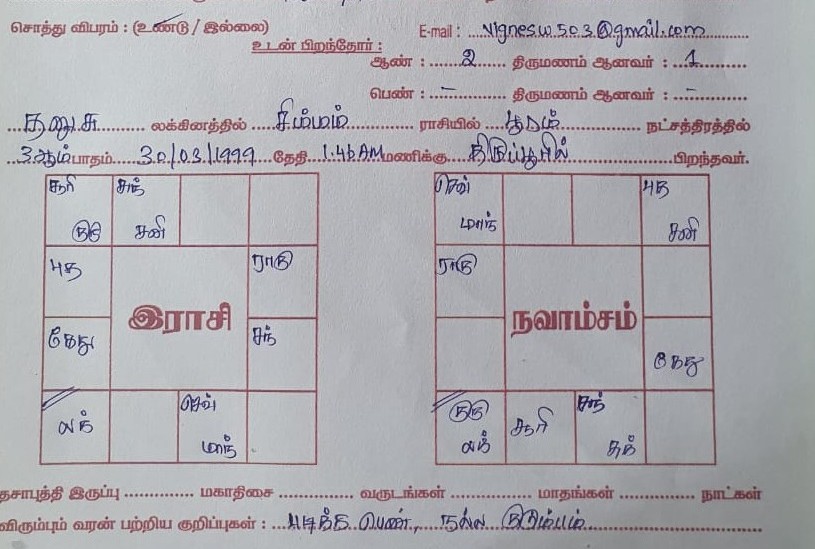 சொத்து விபரம் : (உண்டு / இல்லை) E-mail : vignesw503@gmail.com
உடன் பிறந்தோர் :
ஆண் : 2 திருமணம் ஆனவர் : 1
பெண் : - திருமணம் ஆனவர் : -
தனுசு லக்கினத்தில் சிம்மம் ராசியில் பூரம் நட்சத்திரத்தில்
3ஆம் பாதம் 30/03/1999 தேதி 1.46 AM மணிக்கு திருப்பூரில் பிறந்தவர்.
சூரி சுக் செவ் புத
குரு சனி மாந் சனி
புத ராகு ராகு
இராசி நவாம்சம்
கேது சந் கேது
லக் செவ் மாந் குரு லக் சூரி சந் சுக்
தசாபுத்தி இருப்பு மகாதிசை வருடங்கள் மாதங்கள் நாட்கள்
விரும்பும் வரன் பற்றிய குறிப்புகள் : படித்த பெண், நல்ல குடும்பம்